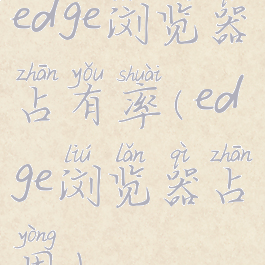 edge浏览器
zhān yǒu shuài
占有率(ed
liú lǎn qì zhān
ge浏览器占
yòng
用)